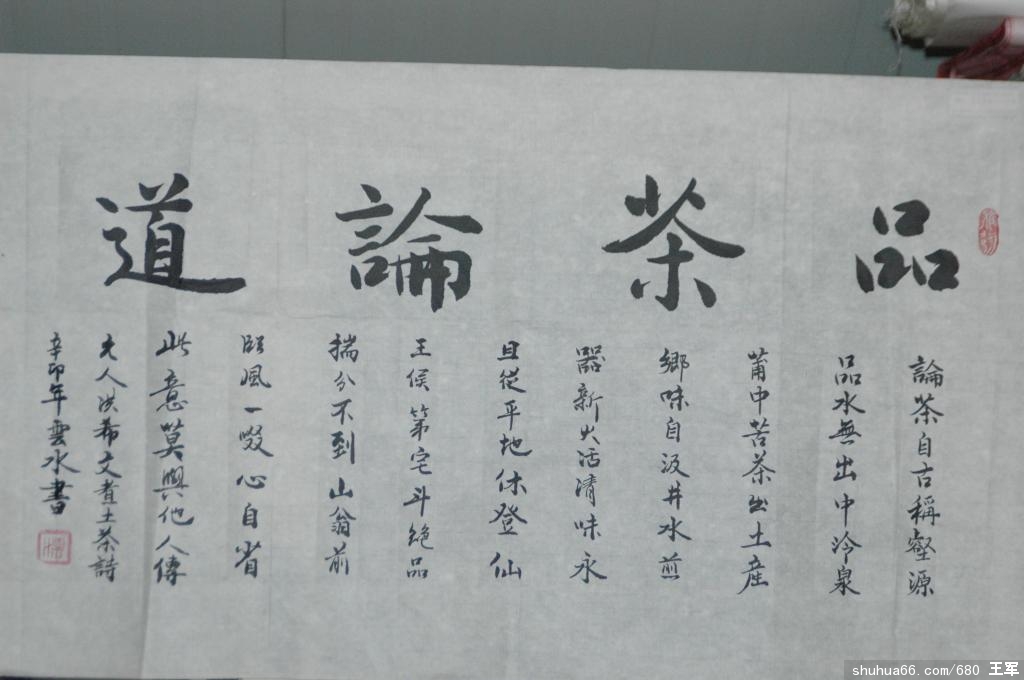 品茶論道
論茶自古稱壑源
品水無出中泠泉
莆中苦茶出土產
鄉味自汲井水煎
器新火活清味永
且從平地休登仙
王侯第宅斗絕品
揣分不到山翁前
臨風一啜心自省
此意莫與他人傳
元人洪希文煮土茶詩
辛卯年雲水書
shuhua66.com/680 王军